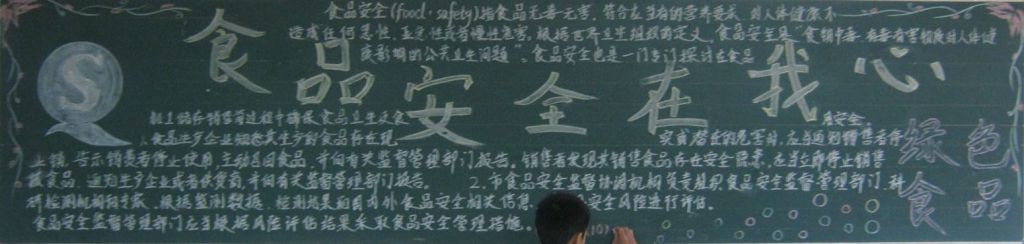 食品安全(food safety)指食品无毒、无害，符合应当有的营养要求，对人体健康不
造成任何急性、亚急性或者慢性危害。根据世界卫生组织的定义，食品安全是"食物中有毒、有害物质对人体健
康影响的公共卫生问题"。食品安全也是一门专门探讨在食品
食品安全在我心
S
加工、储存、销售等过程中确保食品卫生及食
用安全
食品生产企业如发现其生产的食品存在现
实或潜在的危害时，应当通知销售者停
止销
告示消费者停止使用，主动召回食品，并向有关监督管理部门报告。销售者发现其销售食品存在安全隐患，应当立即停止销售
该食品，通知生产企业或者供货商，并向有关监督管理部门报告。 2.市食品安全监督协调机构负责组织食品安全监督管理部门、科
研检测机构和专家，根据监测数据、检测结果和国内外食品安全相关信息
安全风险进行评估。
食品安全监督管理部门应当根据风险评估结果采取食品安全管理措施。
(10)
绿色
食品